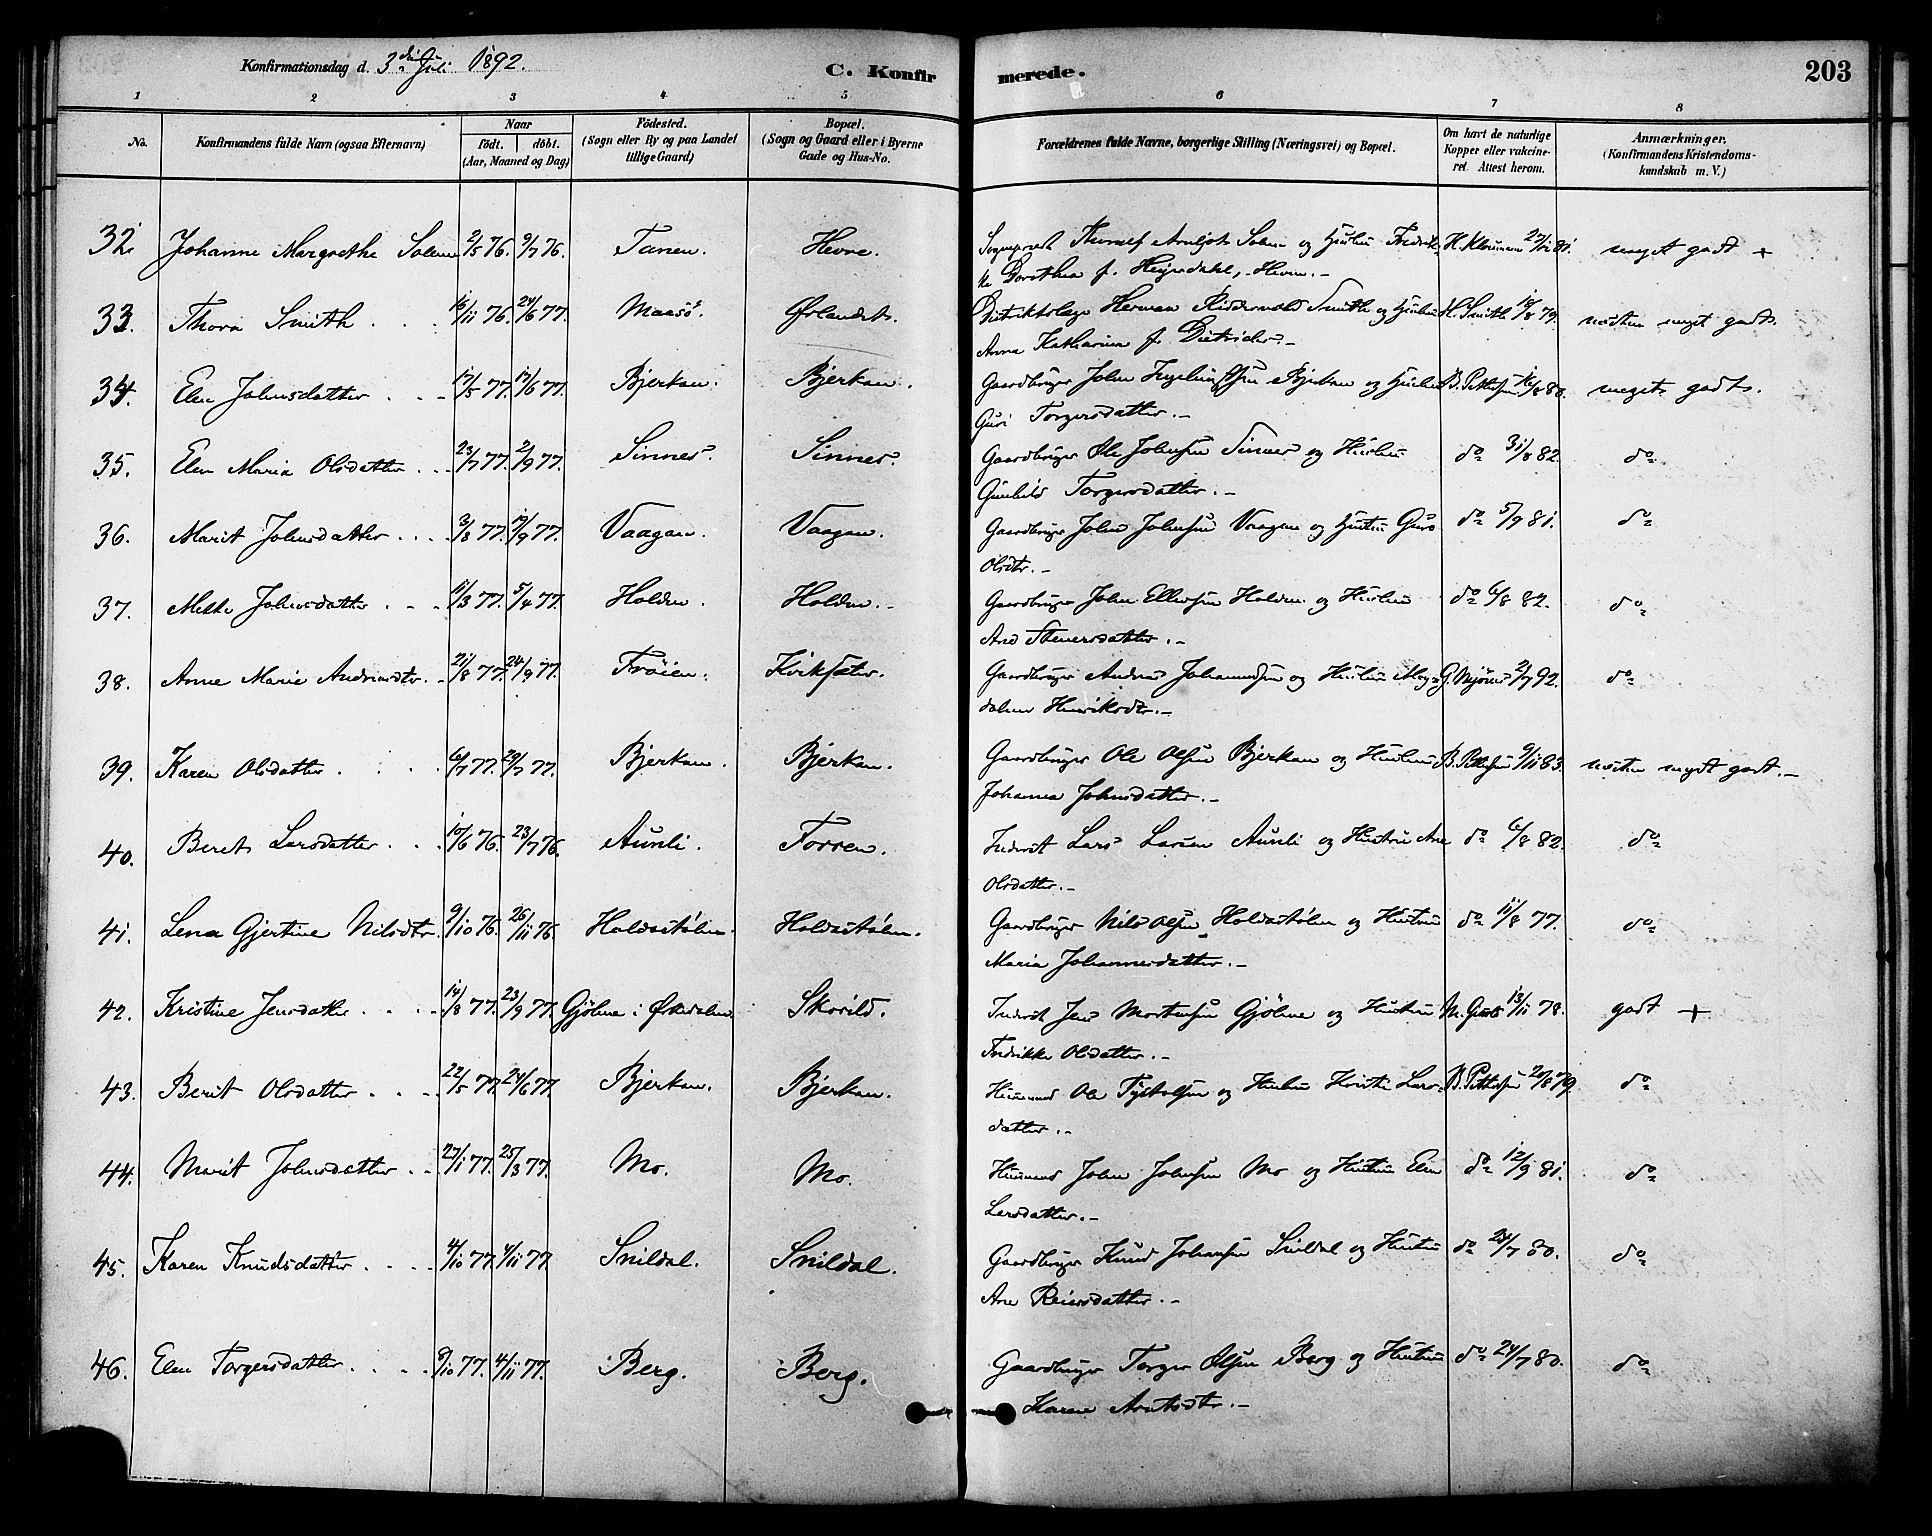 Konfirmationsdag d. 3die Juli 1892.
C. Konfirmerede.
203
1 2 3 4 5 6 7 8
No.
Konfirmandens fulde Navn (ogsaa Efternavn)
Naar
födt. döbt.
(Aar, Maaned og Dag)
Födested.
(Sogn eller By og paa Landet
tillige Gaard)
Bopæl.
(Sogn og Gaard eller i Byerne
Gade og Hus-No.
Forældrenes fulde Navne, borgerlige Stilling (Næringsvei) og Bopæl.
Om havt de naturlige
Kopper eller vakcine-
ret. Attest herom.
Anmærkninger.
(Konfirmandens Kristendoms-
kundskab m. V.)
32. Johanne Margrethe Solem 2/5 76. 9/7 76. Tanen. Hevne. Sogneprest Arnljot Solem og Hustru Fredrik-
ke Dorothea f. Hejerdahl, Hevne.- 81. meget godt +
33. Thora Smith 16/11 76. 24/6 77. Maasö. Ørlandet. Distriktslæge Herman Smith og Hustru H. Smith 18/8 79. næsten meget godt.
Anna Katharina f. Dietrichs.-
34. Elen Johnsdatter 17/5 77. 17/6 77. Bjerkan. Bjerkan. Gaardbruger John Bjerkan og Hustru B. Pettersen 16/8 80. meget godt.
Guri Torgersdatter.-
35. Elen Maria Olsdatter 23/7 77. 2/9 77. Sinnes. Sinnes. Gaardbruger Ole Johnsen Sinnes og Hustru do 31/8 82. do
Gunhild Torgersdatter.-
36. Marit Johnsdatter 3/8 77. 19/9 77. Vaagan. Vaagan. Gaardbruger John Johnsen Vaagan og Hustru Guro do 5/9 81. do
Olsdtr.-
37. Johnsdatter 11/3 77. 5/4 77. Holden. Holden. Gaardbruger John Ellefsen Holden og Hustru do 6/8 82. do
Ane
38. Anne Marie Andreasdtr. 21/8 77. 24/9 77. Fröien. Kirksæter. Gaardbruger Andreas Johannesen og Hustru Mag- 2/7 92. do
dalene Henriksdtr.-
39. Karen Olsdatter 6/7 77. 29/7 77. Bjerkan. Bjerkan. Gaardbruger Ole Olsen Bjerkan og Hustru B. Pettersen 9/11 83. næsten meget godt.-
Johanna Johnsdatter.-
40. Beret Larsdatter 10/6 76. 23/7 76. Aunli. Torren. Inderst Lars Larsen Aunli og Hustru Ane do 6/8 82. do
Olsdatter.-
41. Lena Gjertine Nilsdtr. 9/10 76. 26/11 76. Holdastölen. Holdastölen. Gaardbruger Nils Olsen Holdastölen og Hustru do 11/8 77. do
Maria Johannesdatter.-
42. Kristine Jensdatter 14/8 77. 23/9 77. Gjölme i Örkedalen. Skorild. Inderst Jens Mortensen Gjölme og Hustru 13/11 78. godt +
Fredrikke Olsdatter.-
43. Berit Olsdatter 22/5 77. 24/6 77. Bjerkan. Bjerkan. Husmand Ole og Hustru Kirsti Lars- B. Pettersen 20/8 79. do
datter.-
44. Marit Johnsdatter 27/1 77. 25/3 77. Mo. Mo. Husmand John Johnsen Mo og Hustru Elen do 12/9 81. do
Larsdatter.-
45. Karen Knudsdatter 4/10 77. 4/11 77. Snildal. Snildal. Gaardbruger Knud Johansen Snildal og Hustru do 24/7 80. do
Ane Reiersdatter.-
46. Elen Torgersdatter 9/10 77. 4/11 77. Berg. Berg. Gaardbruger Torger Olsen Berg og Hustru do 24/7 80. do
Karen Arntsdtr.-